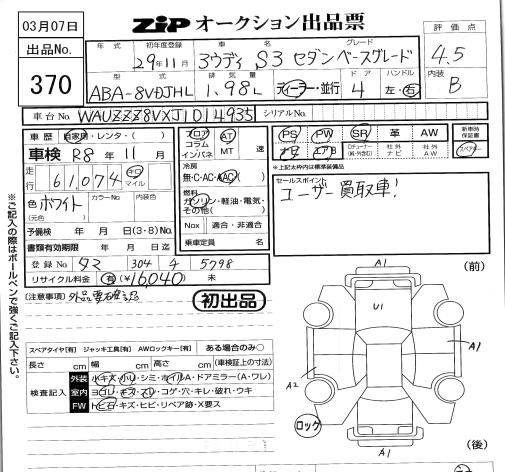 03月07日
ZIP オークション出品票
出品No.
370
年式 初年度登録 車名 グレード
29年11月 アウディ S3 セダン ベースグレード
評価点
4.5
型式 排気量 ドア ハンドル
ABA-8VDJHL 1.98L ディーラー・並行 4 左・右
内装
B
車台No. WAUZZZ8VXJ1014935 シリアルNo.
車歴 自家用・レンタ・( )
車検 R8年 11月
走行 61,074 キロ マイル
色 ホワイト カラーNo. 内装色
(元色)
予備検 年 月 日(3・8)No.
書類有効期限 年 月 日迄
登録No. 304 5798
リサイクル料金 有(¥16,040) 未
フロア コラム インパネ
AT MT 速
冷房
無・C・AC・AAC
燃料
ガソリン・軽油・電気・その他( )
Nox 適合・非適合
乗車定員 名
PS PW SR 革 AW
ナビ エアB ○チューナー(純・外含む) 社外ナビ 社外AV 社外AW
新車時保証書
スペアキー
*上記太枠内は標準装備品
セールスポイント
ユーザー買取車!
(注意事項)
初出品
※ご記入の際はボールペンで強くご記入下さい。
スペアタイヤ[有] ジャッキ工具[有] AWロックキー[有] ある場合のみ○
長さ cm 幅 cm 高さ cm (車検証上の寸法)
検査記入
外装 小キズ・小U・シミ・ホイルA・ドアミラー(A・ワレ)
室内 ヨゴレ・キズ・スリ・コゲ・穴・キレ・破れ・ウキ
FW トビ石・キズ・ヒビ・リペア跡・X要ス
A1 (前)
U1
A1
A2
ロック
A1
(後)